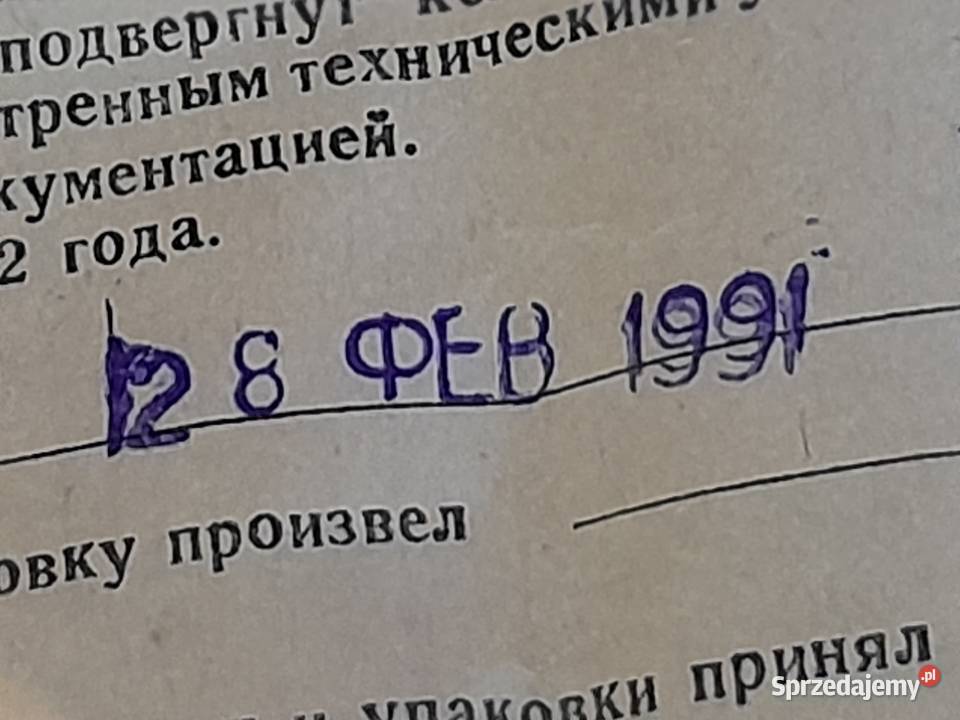 подвергнут
тренным техническими
кументацией.
2 года.
28 ФЕВ 1991
овку произвел
упаковки принял
Sprzedajemy.pl